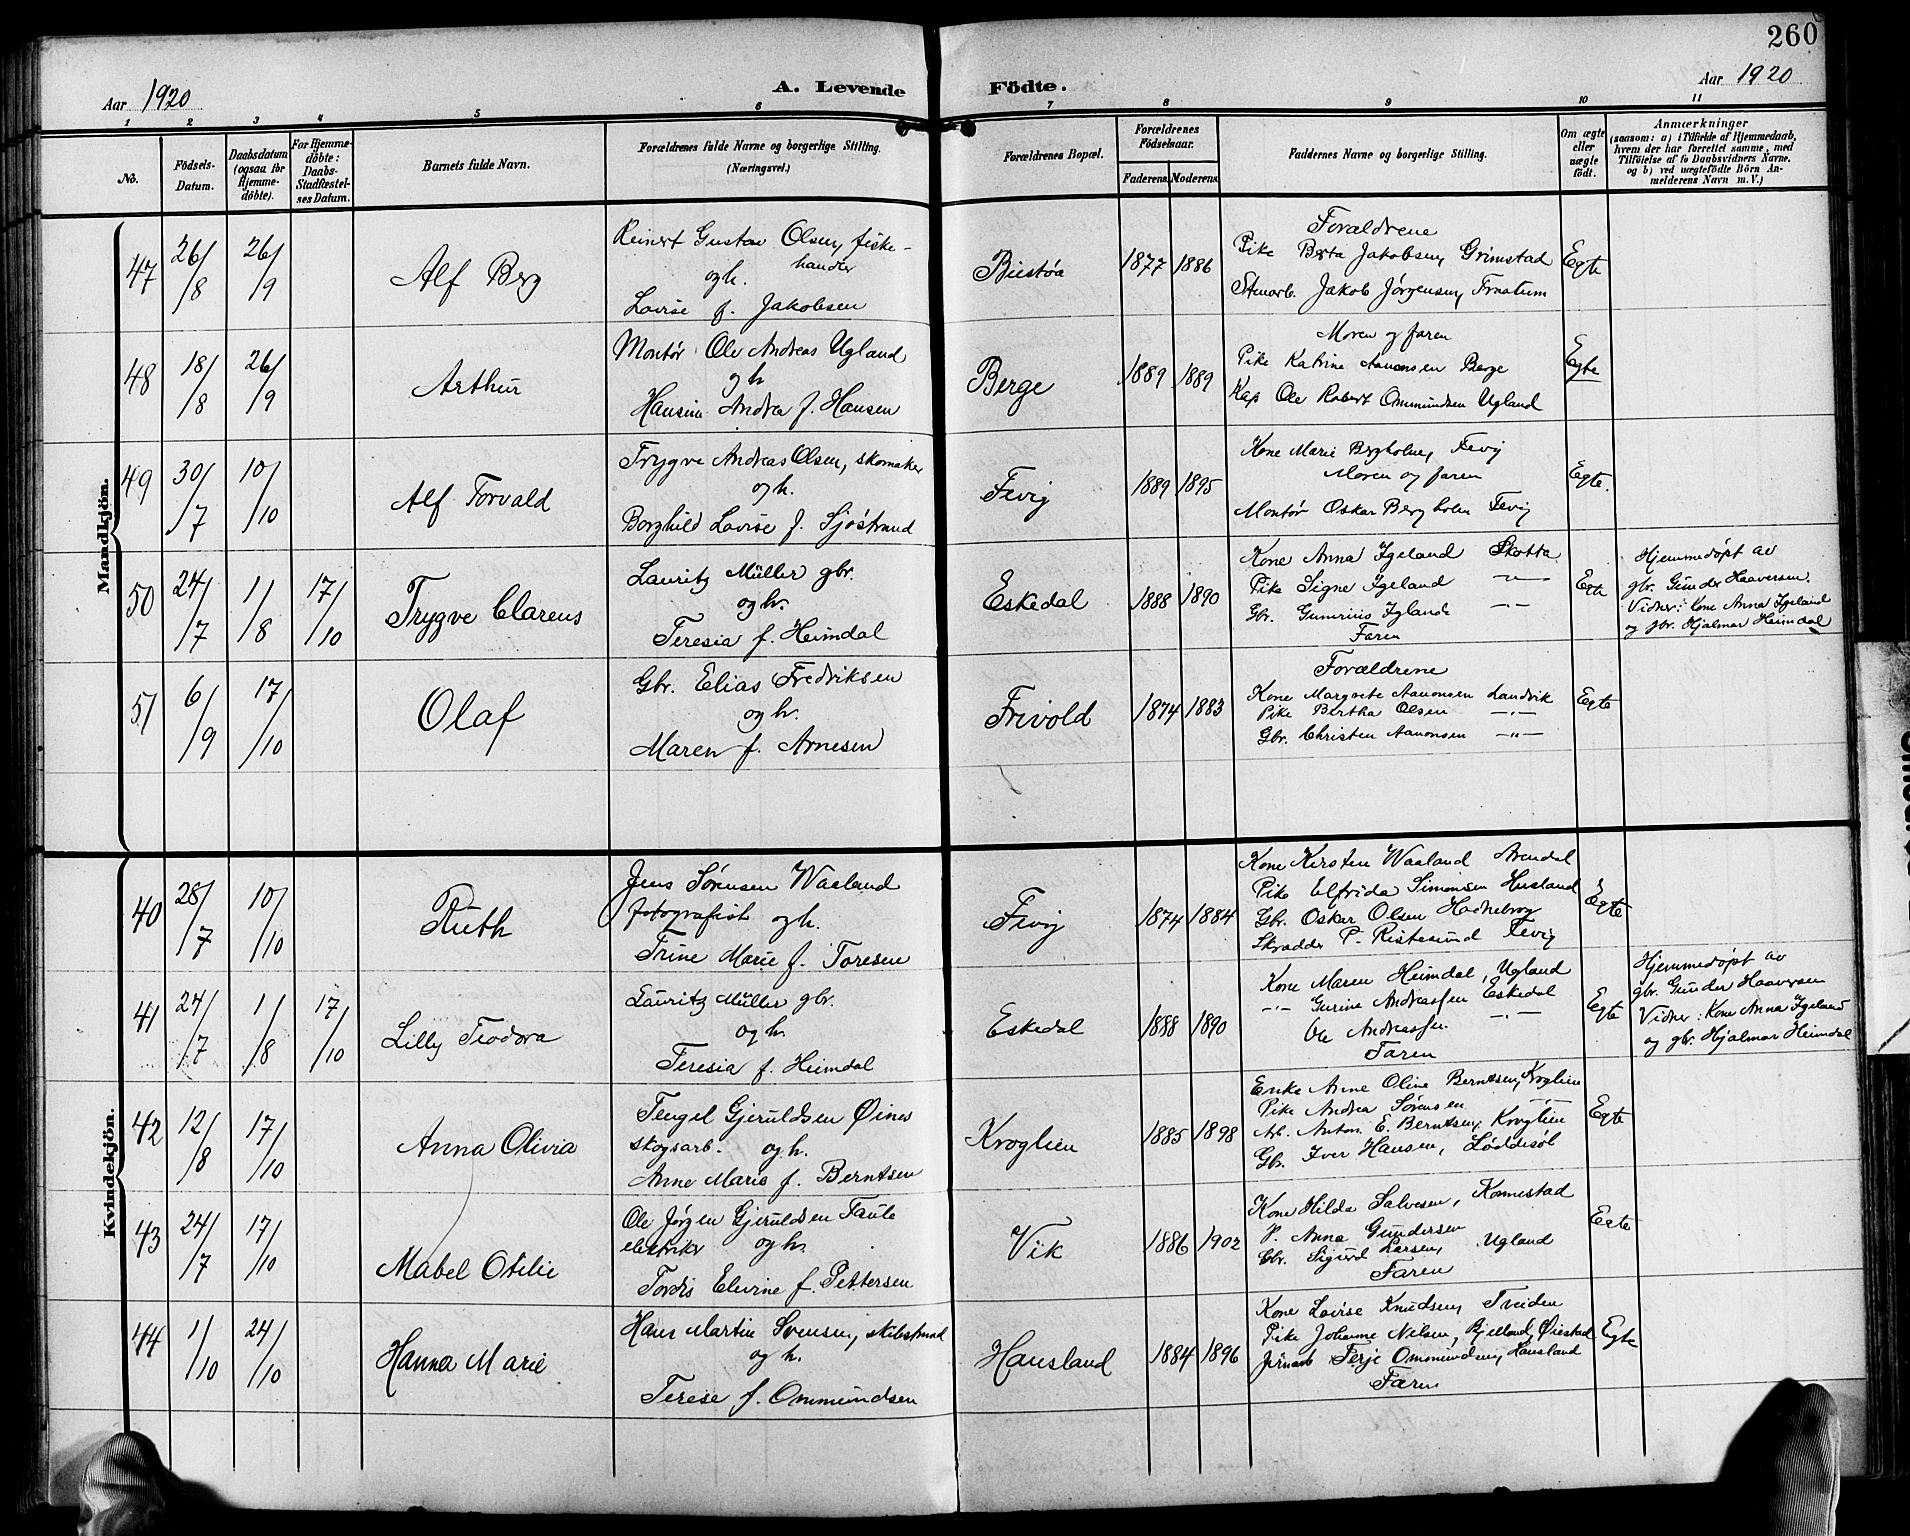 260
Aar 1920 A. Levende Födte. Aar 1920
1 2 3 4 5 6 7 8 9 10 11
No.
Födsels-
Datum.
Daabsdatum
(ogsaa for
Hjemme-
döbte).
For Hjemme-
döbte:
Daabs-
Stadfæstel-
ses Datum.
Barnets fulde Navn.
Forældrenes fulde Navne og borgerlige Stilling.
(Næringsvei.)
Forældrenes Bopæl.
Forældrenes
Födselsaar.
Faderens. Moderens.
Faddernes Navne og borgerlige Stilling.
Om ægte
eller
uægte
födt.
Anmærkninger
(saasom: a) i Tilfælde af Hjemmedaab,
hvem der har forrettet samme, med
Tilföielse af to Daabsvidners Navne.
og b) ved uægtefödte Börn An-
melderens Navn m.V.)
Mandkjön.
47 26/8 26/9 Alf Berg
Reinert Gustav Olsen, fiske-
handler
og h.
Lovise f. Jakobsen
Biestøa 1877 1886
Forældrene
Pike Berta Jakobsen, Grimstad
Stenarb. Jakob Jørgensen,
Egte
48 18/8 26/9 Arthur
Montør Ole Andreas Ugland
og h
Hansine Andrea f. Hansen
Berge 1889 1889
Moren og faren
Pike Katrine Aanonsen Berge
Kap Ole Robert Ommundsen Ugland
Egte
49 30/7 10/10 Alf Torvald
Trygve Andreas Olsen, skomaker
og h.
Borghild Lovise f. Sjøstrand
Fevig 1889 1895
Kone Marie Bergholm, Fevig
Moren og faren
Montør Oskar Bergholm Fevig
Egte.
50 24/7 1/8 17/10 Trygve Clarens
Lauritz Müller gbr.
og h.
Teresia f. Heimdal
Eskedal 1888 1890
Kone Anna Igeland Skotta
Pike Signe Igeland —"—
Gbr. Gumerius Iglande —"—
Faren
Egte
Hjemmedøpt av
gbr. Gunder Haaversen.
Vidner: Kone Anna Igeland
og gbr. Hjalmar Heimdal
51 6/9 17/10 Olaf
Gbr. Elias Fredriksen
og h.
Maren f. Arnesen
Frivold 1874 1883
Forældrene
Kone Margrete Aanonsen Landvik
Pike Bertha Olsen —"—
Gbr. Christen Aanonsen —"—
Egte
Kvindekjön.
40 28/7 10/10 Ruth
Jens Sørensen Waaland
fotografist og h.
Trine Marie f. Toresen
Fevig 1874 1884
Kone Kirsten Waaland Arendal
Pike Elfrida Simonsen Husland
Gbr. Oskar Olsen Hadnebrog
Skrædder P. Ristesund Fevig
Egte
41 24/7 1/8 17/10 Lilly Teodora
Lauritz Müller gbr.
og h.
Teresia f. Heimdal
Eskedal 1888 1890
Kone Maren Heimdal, Ugland
—"— Gurine Andreassen Eskedal
Ole Andreassen —"—
Faren
Egte
Hjemmedøpt av
gbr. Gunder Haaversen
Vidner: Kone Anna Igeland
og gbr. Hjalmar Heimdal
42 12/8 17/10 Anna Olivia
Tengel Gjeruldsen Øines
skogsarb. og h.
Anne Marie f. Berntsen
Kroglien 1885 1898
Enke Anne Oline Berntsen, Kroglien
Pike Andrea Sørensen —"—
Arb. Anton E. Berntsen, Kroglien
Gbr. Iver Hansen, Løddesøl
Egte
43 24/7 17/10 Mabel Otilie
Ole Jørgen Gjeruldsen Taule
elektriker og h.
Tordis Elevine f. Pettersen
Vik 1886 1902
Kone Hilda Salvesen, Konnestad
P. Anna Gundersen
Gbr. Sigurd Larsen, Ugland
Faren
Egte
44 1/10 24/10 Hanna Marie
Hans Martin Svensen,
og h.
Terese f. Ommundsen
Hausland 1884 1896
Kone Lovise Knudsen, Tveiden
Pike Johanne Nilsen, Bjelland, Øiestad
Jernarb Terje Ommundsen, Hausland
Faren
Egte